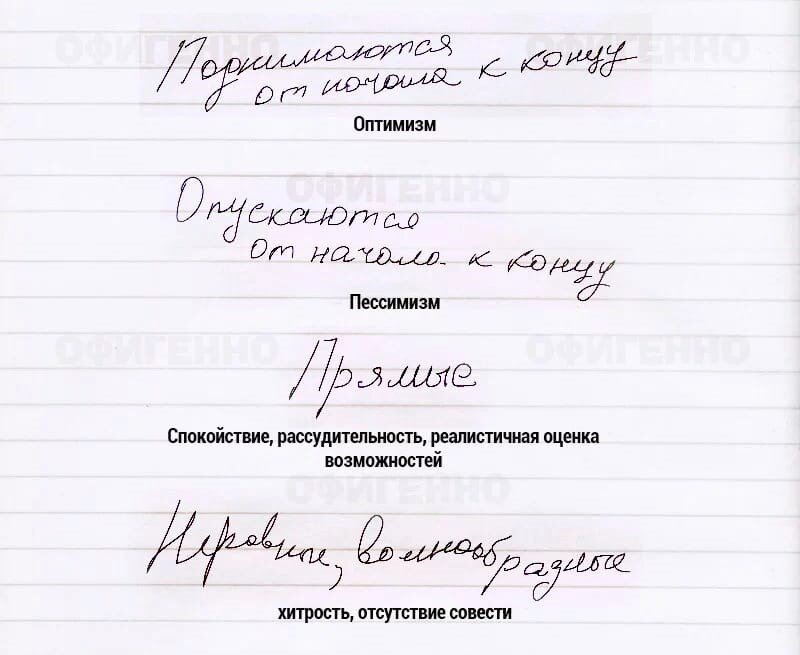 ОФИГЕННО ОФИГЕННО
Поднимаются
от начала к концу
Оптимизм
ОФИГЕННО
Опускаются
от начала к концу
Пессимизм
Прямые
ОФИГЕННО ОФИГЕННО
Спокойствие, рассудительность, реалистичная оценка
возможностей
ОФИГЕННО
Неровные, волнообразные
хитрость, отсутствие совести